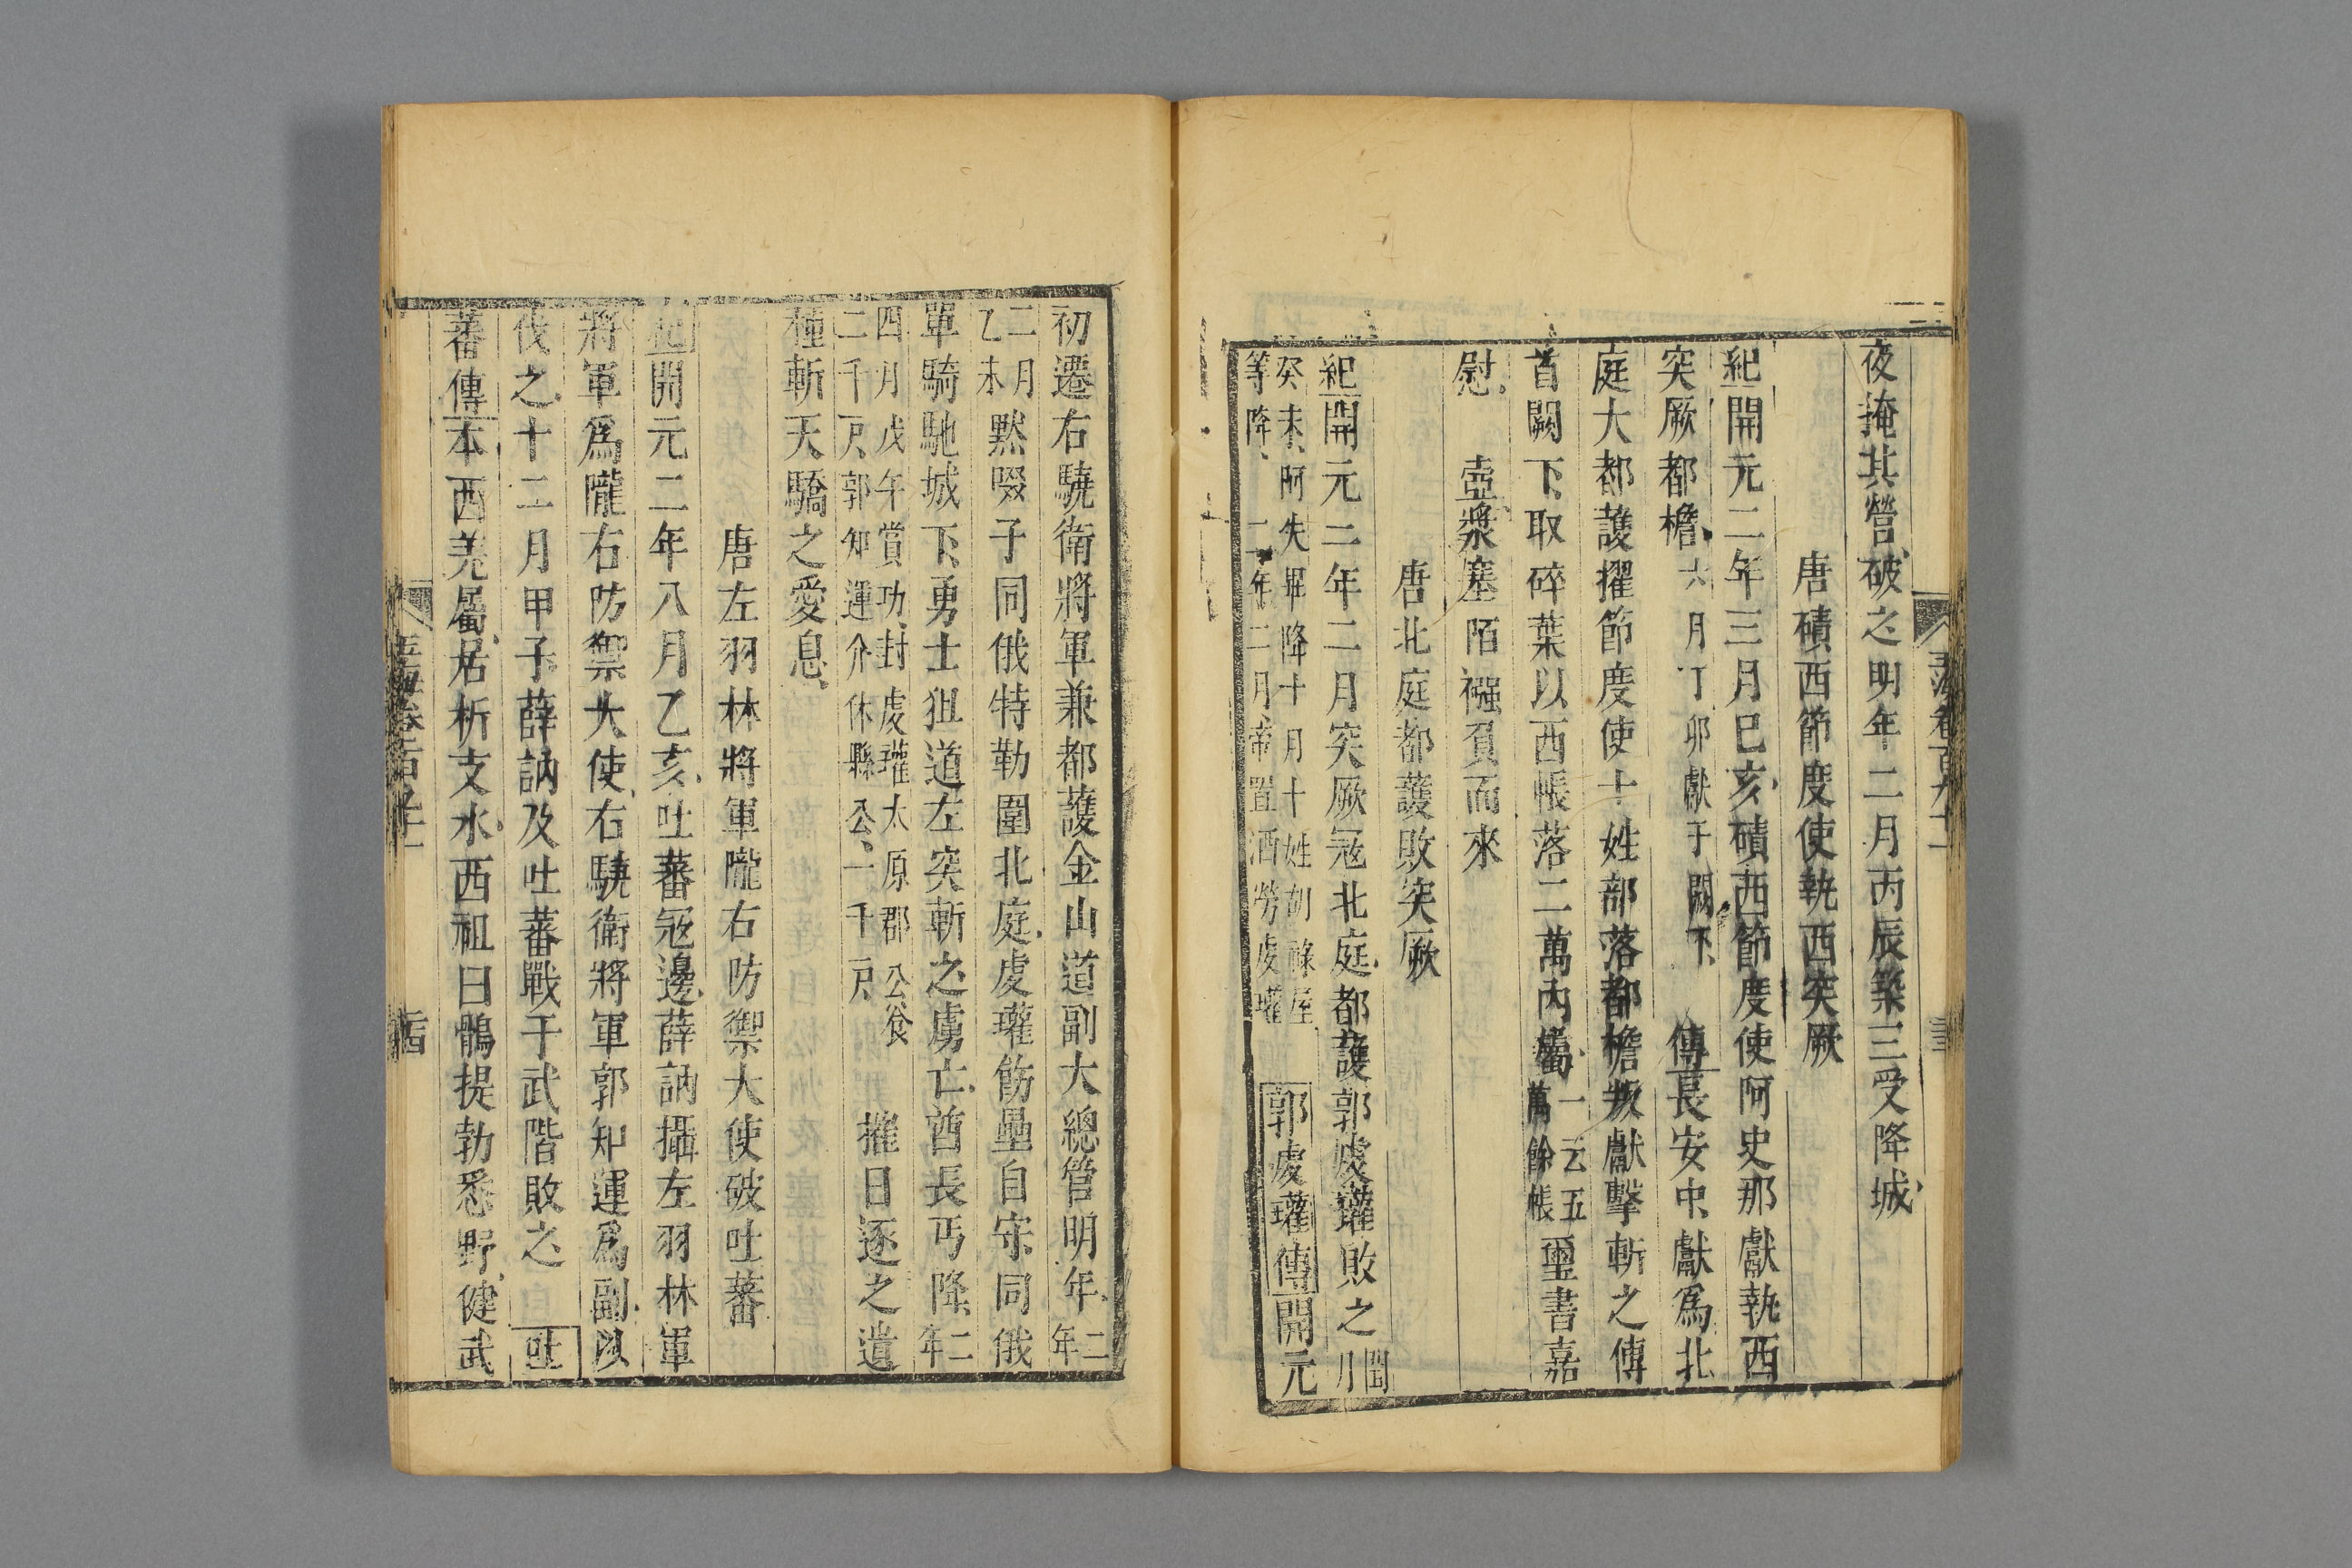 夜掩其營破之明年二月丙辰築三受降城
唐磧西節度使執西突厥
紀開元二年三月巳亥磧西節度使阿史那獻執西
突厥都檐六月丁卯獻于闕下傳長安中獻爲北
庭大都護擢節度使十姓部落都檐叛獻擊斬之傳
首闕下取碎葉以西帳落二萬內屬一云五萬餘帳璽書嘉
慰 壺漿塞陌襁負而來
唐北庭都護敗突厥
紀開元二年二月突厥寇北庭都護郭虔瓘敗之閏月
癸未阿失畢降十月十姓胡祿屋等降二年二月帝置酒勞虔瓘郭虔瓘傳開元
初遷右驍衛將軍兼都護金山道副大總管明年二年
二月乙未默啜子同俄特勒圍北庭虔瓘飭壘自守同俄
單騎馳城下勇士狙道左突斬之虜亡酋長丐降二年
四月戊午賞功封虔瓘太原郡公食二千戶郭知運介休縣公一千戶 摧日逐之遺
種斬天驕之愛息
唐左羽林將軍隴右防禦大使破吐蕃
紀開元二年八月乙亥吐蕃寇邊薛訥攝左羽林軍
將軍爲隴右防禦大使右驍衛將軍郭知運爲副以
伐之十二月甲子薛訥及吐蕃戰于武階敗之 吐
蕃傳本西羌屬居析支水西祖曰鶻提勃悉野健武